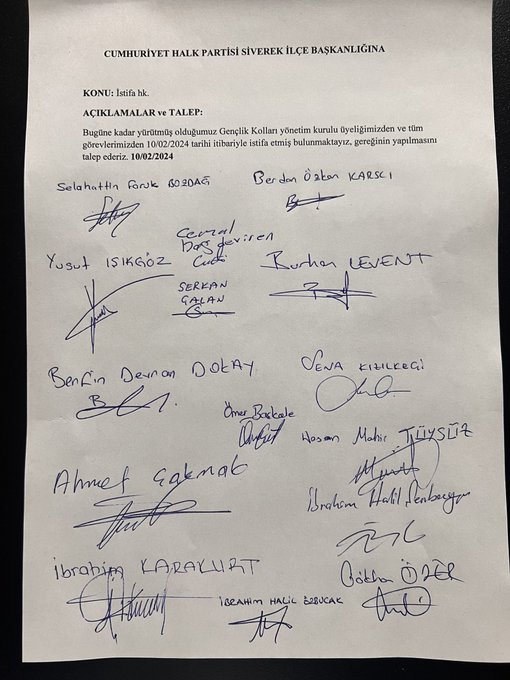 CUMHURİYET HALK PARTİSİ SİVEREK İLÇE BAŞKANLIĞINA
KONU: İstifa hk.
AÇIKLAMALAR ve TALEP:
Bugüne kadar yürütmüş olduğumuz Gençlik Kolları yönetim kurulu üyeliğimizden ve tüm
görevlerimizden 10/02/2024 tarihi itibariyle istifa etmiş bulunmaktayız, gereğinin yapılmasını
talep ederiz. 10/02/2024
Selahattin Faruk BOZDAĞ
Berdan Özkan KARSCI
Cemal
başdeviren
Yusuf IŞIKGÖZ
Burhan LEVENT
SERKAN
GALAN
Benfin Devran DOKAY
SENA KIZILKEÇİ
Ömer Baskale
Hasan Mahir TÜYSÜZ
Ahmet Çakmak
İbrahim Halil
İbrahim KARAKURT
Gökhan ÖZER
İBRAHİM HALİL